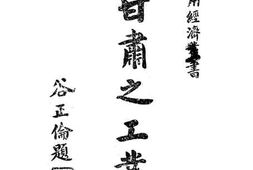 用經濟叢書
甘肅之工業
谷正倫題